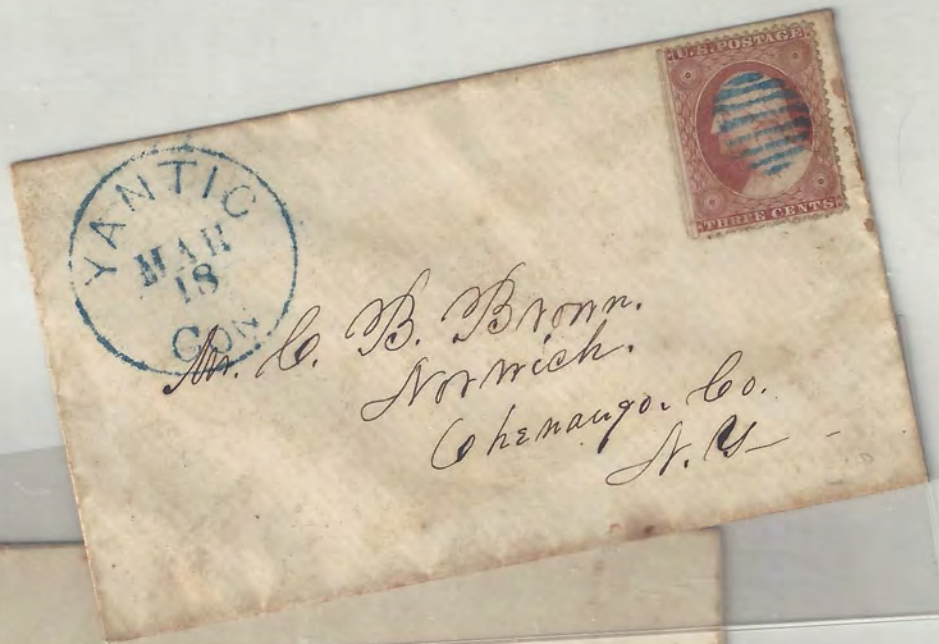 U.S. POSTAGE
THREE CENTS
YANTIC
MAR
18
CON.
Mr. C. B. Brown.
Norwich.
Chenaugo. Co.
N. Y